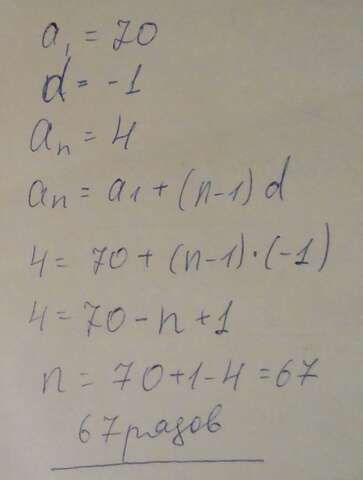 a₁ = 70
d = -1
aₙ = 4
aₙ = a1 + (n-1) d
4 = 70 + (n-1)·(-1)
4 = 70 - n + 1
n = 70+1-4 = 67
67 рядов